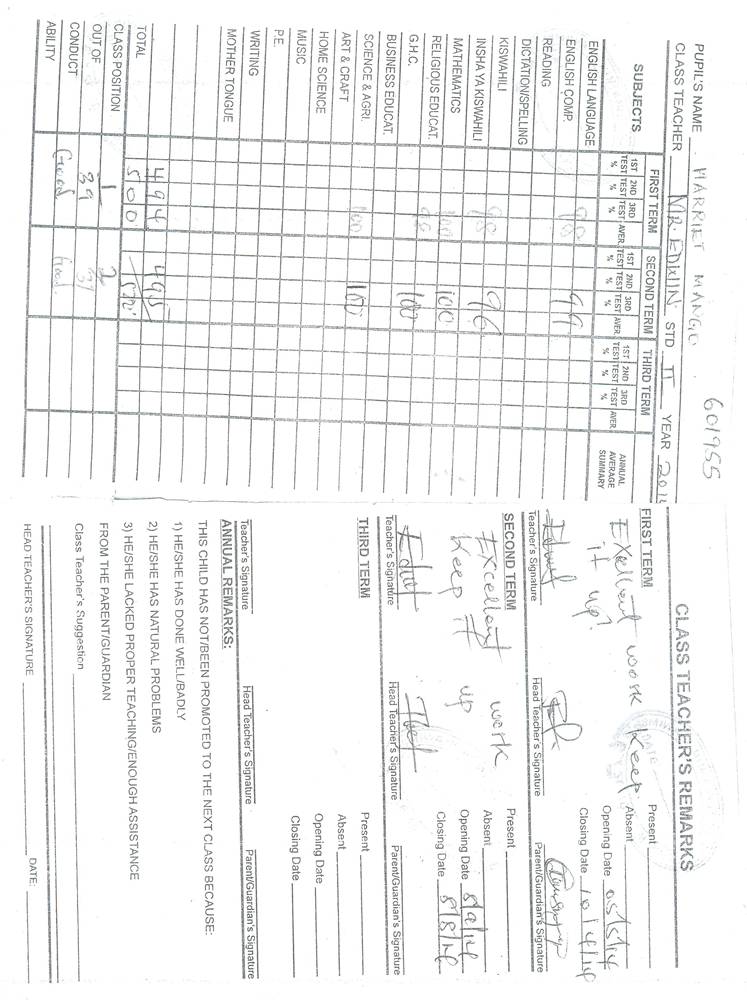 601955
PUPIL'S NAME HARRIET MANGO
CLASS TEACHER MR. EDWIN STD II YEAR
SUBJECTS FIRST TERM SECOND TERM THIRD TERM ANNUAL AVERAGE SUMMARY
1ST TEST % 2ND TEST % 3RD TEST % AVER. 1ST TEST % 2ND TEST % 3RD TEST % AVER. 1ST TEST % 2ND TEST % 3RD TEST % AVER
ENGLISH LANGUAGE
ENGLISH COMP. 98 99
READING
DICTATION/SPELLING
KISWAHILI
INSHA YA KISWAHILI 98 96
MATHEMATICS 100 100
RELIGIOUS EDUCAT.
G.H.C. 98 100
BUSINESS EDUCAT.
SCIENCE & AGRI. 100 100
ART & CRAFT
HOME SCIENCE
MUSIC
P.E.
WRITING
MOTHER TONGUE
TOTAL 494 500 495 500
CLASS POSITION 1 2
OUT OF 39
CONDUCT Good Good
ABILITY
CLASS TEACHER'S REMARKS
FIRST TERM
Present
Excellent work keep Absent
it up! Opening Date 05/5/14
Closing Date 10/4/14
Teacher's Signature Head Teacher's Signature Parent/Guardian's Signature
SECOND TERM
Present
Excellent work Absent
Keep it up Opening Date
Closing Date 8/8/14
Teacher's Signature Head Teacher's Signature Parent/Guardian's Signature
THIRD TERM
Present
Absent
Opening Date
Closing Date
Teacher's Signature Head Teacher's Signature Parent/Guardian's Signature
ANNUAL REMARKS:
THIS CHILD HAS NOT/BEEN PROMOTED TO THE NEXT CLASS BECAUSE:
1) HE/SHE HAS DONE WELL/BADLY
2) HE/SHE HAS NATURAL PROBLEMS
3) HE/SHE LACKED PROPER TEACHING/ENOUGH ASSISTANCE
FROM THE PARENT/GUARDIAN
Class Teacher's Suggestion
HEAD TEACHER'S SIGNATURE DATE: